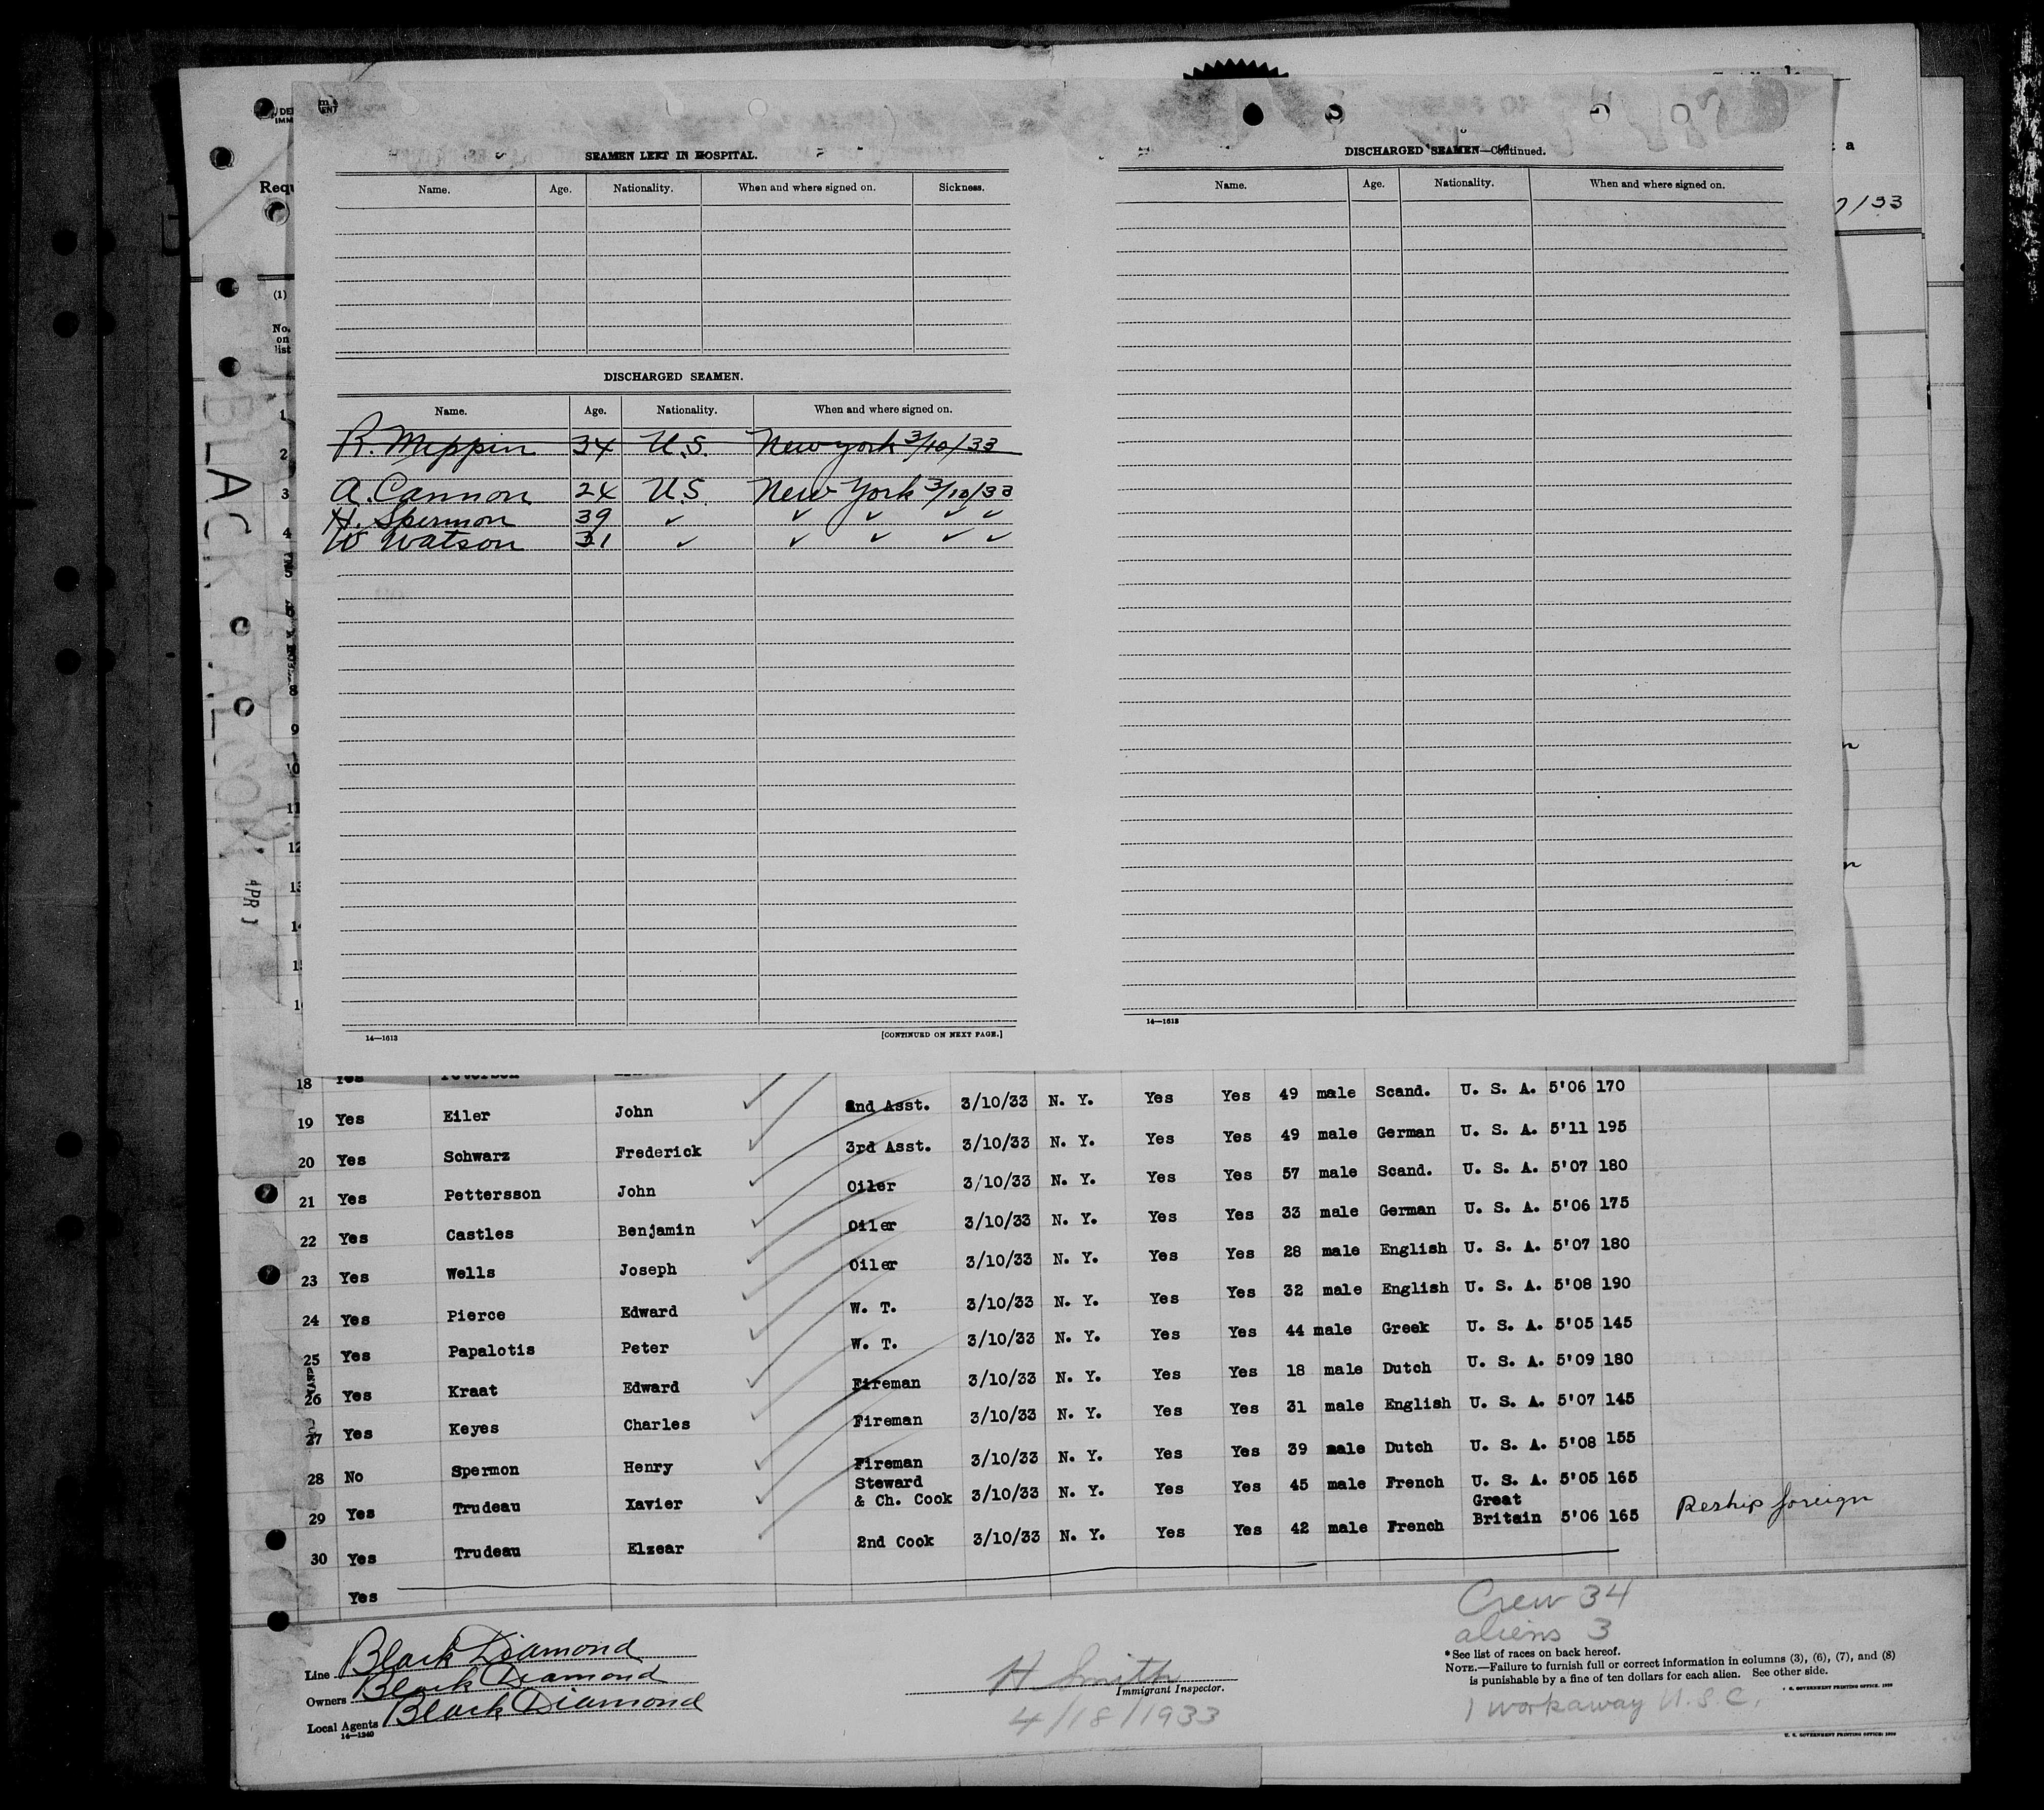 SEAMEN LEFT IN HOSPITAL.
Name. Age. Nationality. When and where signed on. Sickness.
DISCHARGED SEAMEN.
Name. Age. Nationality. When and where signed on.
R. Meppin 34 U.S. New York 3/10/33
A. Cannon 24 U.S. New York 3/10/33
H. Spermon 39 ✓ ✓ ✓ ✓ ✓
W Watson 31 ✓ ✓ ✓ ✓ ✓
14—1613 [CONTINUED ON NEXT PAGE.]
DISCHARGED SEAMEN—Continued.
Name. Age. Nationality. When and where signed on.
14—1613
Requ
(1)
No.
on
list
7/33
BLACK FALCON
APR 1
1
2
3
4
8
9
10
11
12
13
18 Yes
49 male Scand. U. S. A. 5'06 170
19 Yes Eiler John 2nd Asst. 3/10/33 N. Y. Yes Yes 49 male German U. S. A. 5'11 195
20 Yes Schwarz Frederick 3rd Asst. 3/10/33 N. Y. Yes Yes 57 male Scand. U. S. A. 5'07 180
21 Yes Pettersson John Oiler 3/10/33 N. Y. Yes Yes 33 male German U. S. A. 5'06 175
22 Yes Castles Benjamin Oiler 3/10/33 N. Y. Yes Yes 28 male English U. S. A. 5'07 180
23 Yes Wells Joseph Oiler 3/10/33 N. Y. Yes Yes 32 male English U. S. A. 5'08 190
24 Yes Pierce Edward W. T. 3/10/33 N. Y. Yes Yes 44 male Greek U. S. A. 5'05 145
25 Yes Papalotis Peter W. T. 3/10/33 N. Y. Yes Yes 18 male Dutch U. S. A. 5'09 180
26 Yes Kraat Edward Fireman 3/10/33 N. Y. Yes Yes 31 male English U. S. A. 5'07 145
27 Yes Keyes Charles Fireman 3/10/33 N. Y. Yes Yes 39 male Dutch U. S. A. 5'08 155
28 No Spermon Henry Fireman 3/10/33 N. Y. Yes Yes 45 male French U. S. A. 5'05 165
29 Yes Trudeau Xavier Steward & Ch. Cook 3/10/33 N. Y. Yes Yes 42 male French Great Britain 5'06 165 Reship foreign
30 Yes Trudeau Elzear 2nd Cook 3/10/33 N. Y.
Yes
Crew 34
aliens 3
Line Black Diamond
Owners Black Diamond
Local Agents Black Diamond
14—1240
H Smith
Immigrant Inspector.
4/18/1933
*See list of races on back hereof.
NOTE.—Failure to furnish full or correct information in columns (3), (6), (7), and (8)
is punishable by a fine of ten dollars for each alien. See other side.
1 workaway U.S.C.
U. S. GOVERNMENT PRINTING OFFICE